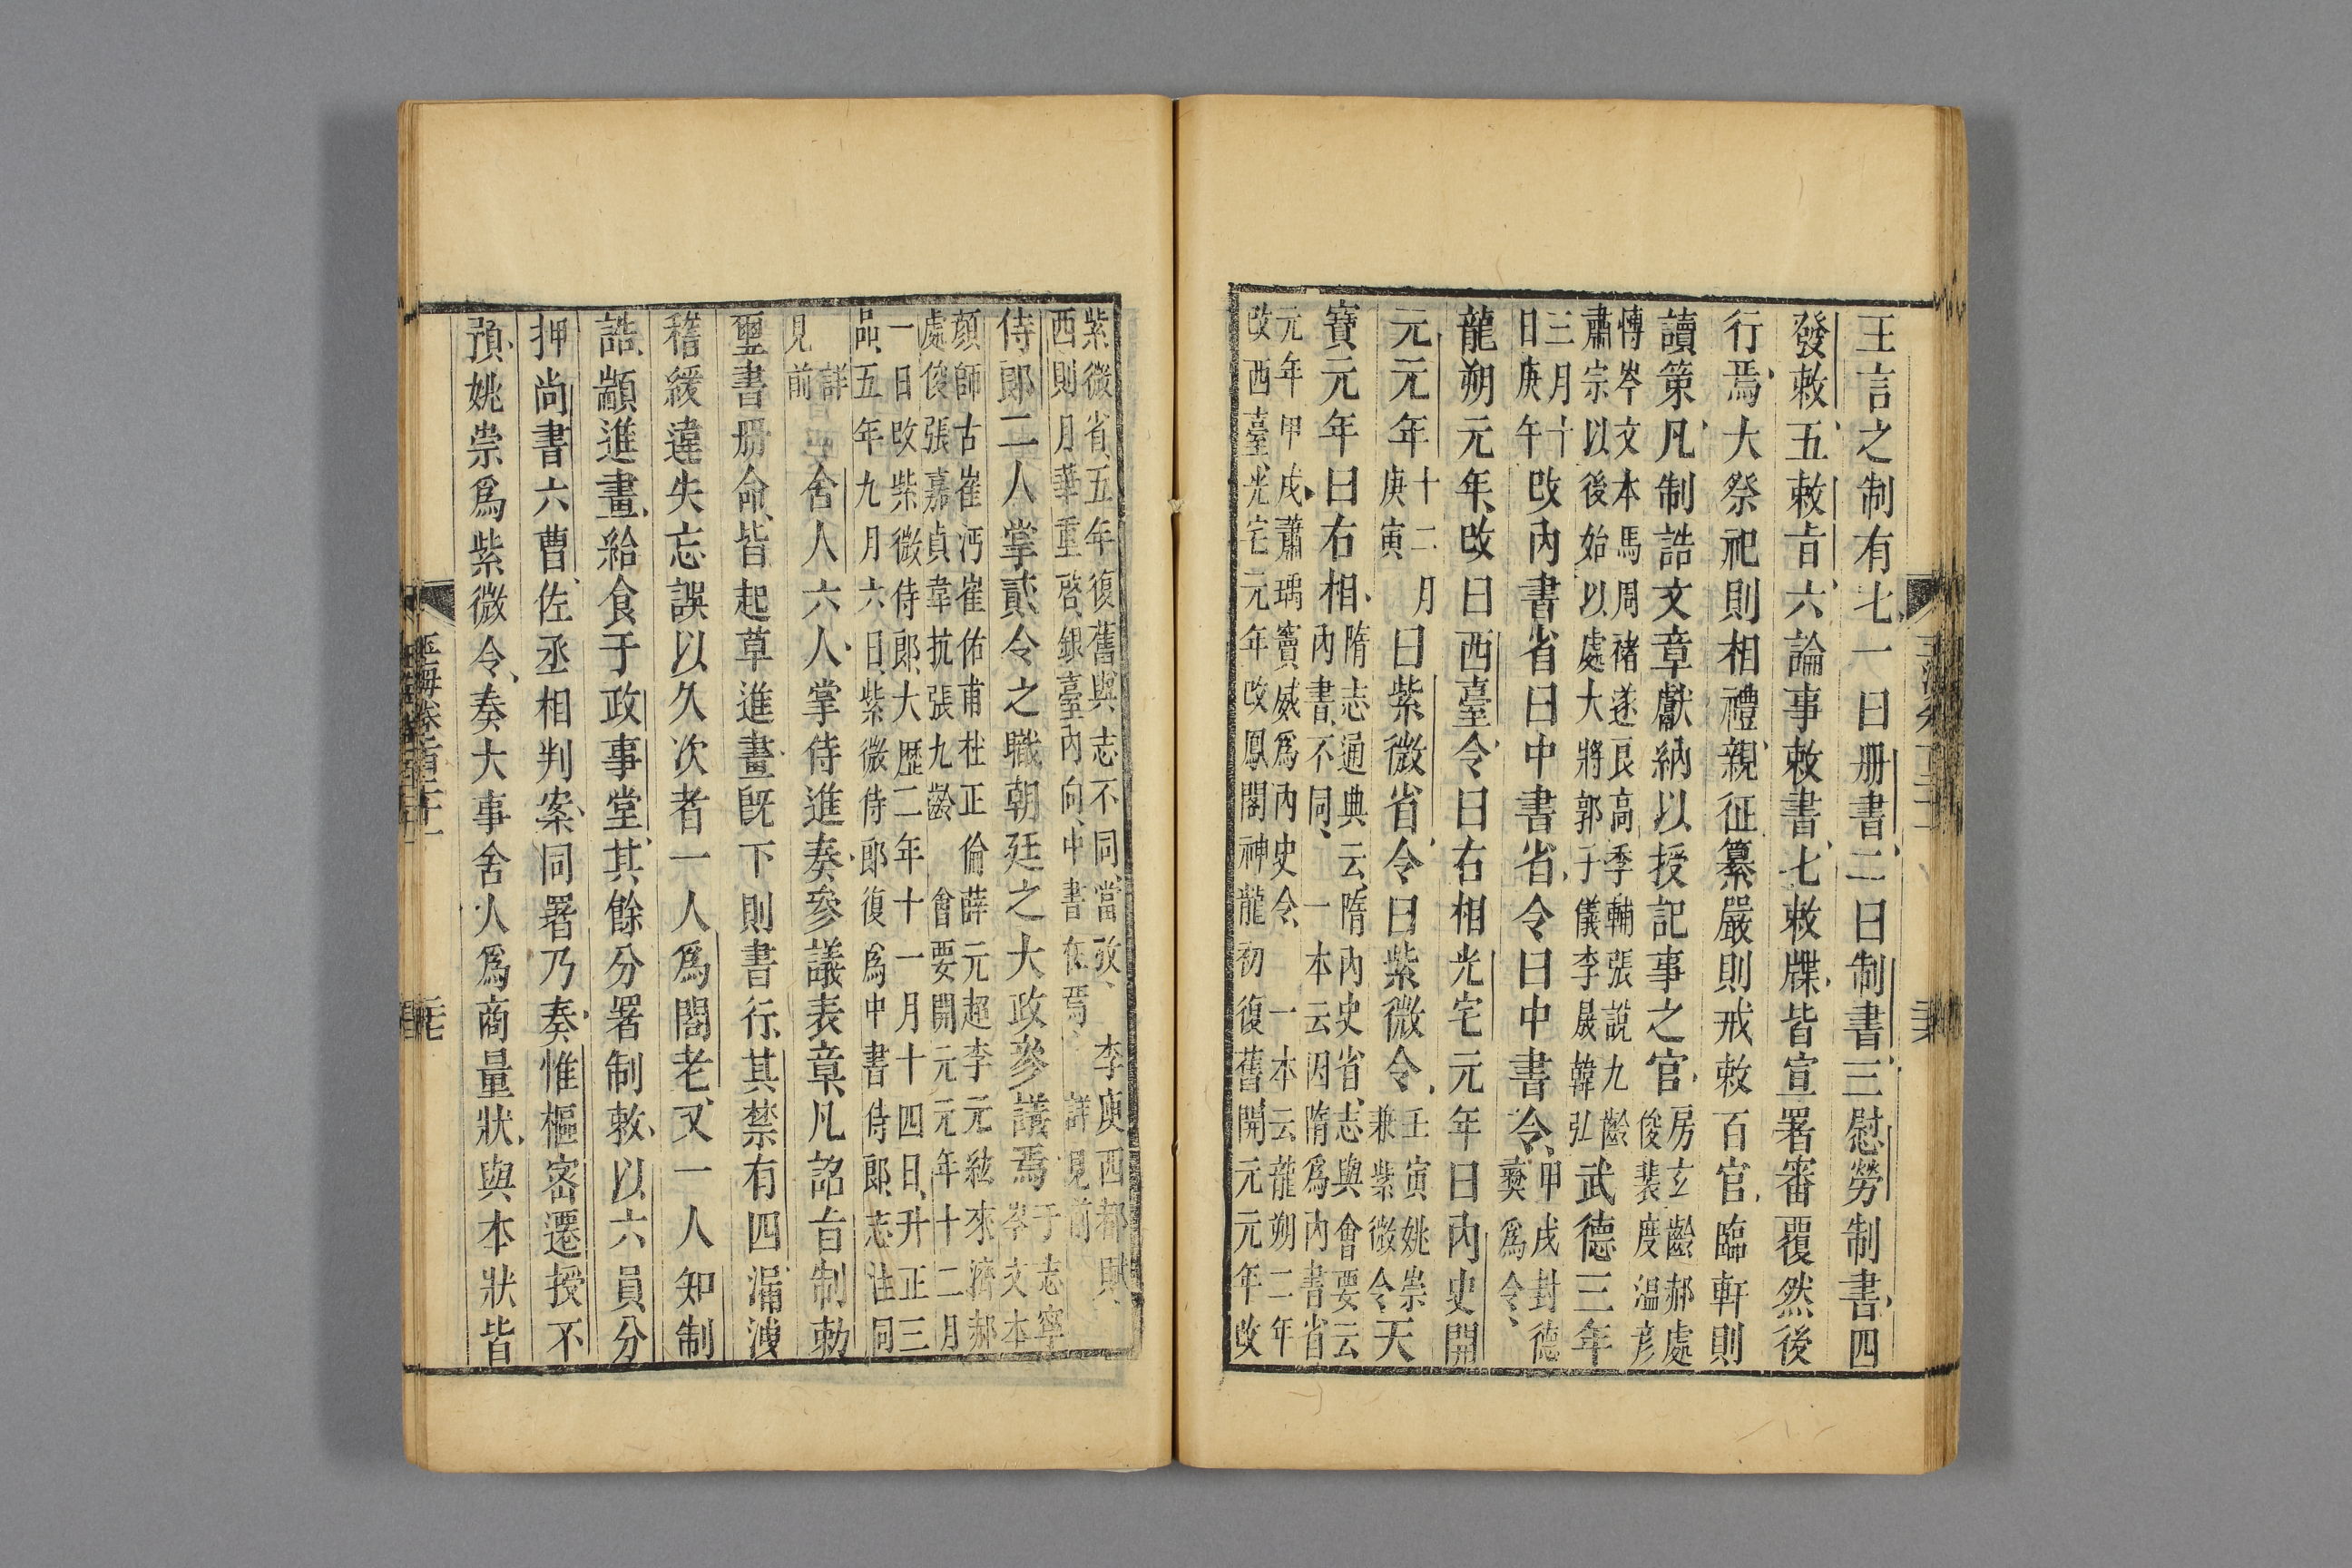 王言之制有七一曰册書二曰制書三慰勞制書四
發敕五敕旨六論事敕書七敕牒皆宣署審覆然後
行焉大祭祀則相禮親征纂嚴則戒敕百官臨軒則
讀策凡制誥文章獻納以授記事之官房玄齡郝處
俊裴度温彦
慱岑文本馬周褚遂良高季輔張說九齡
肅宗以後始以處大將郭子儀李晟韓弘武德三年
三月十
日庚午改內書省曰中書省令曰中書令甲戌封德
彝爲令
龍朔元年改曰西臺令曰右相光宅元年曰內史開
元元年十二月
庚寅曰紫微省令曰紫微令壬寅姚崇
兼紫微令天
寶元年曰右相隋志通典云隋內史省志與會要云
內書不同一本云因隋爲內書省
元年甲戌蕭瑀竇威爲內史令一本云龍朔二年
改西臺光宅元年改鳳閣神龍初復舊開元元年改
紫微省五年復舊與志不同當攷李庾西都賦
西則月華重啓銀臺內向中書在焉詳見前
侍郎二人掌貳令之職朝廷之大政參議焉于志寧
岑文本
顏師古崔沔崔佑甫杜正倫薛元超李元紘來濟郝
處俊張嘉貞韋抗張九齡會要開元元年十二月
一日改紫微侍郎大歷二年十一月十四日升正三
品五年九月六日紫微侍郎復爲中書侍郎志注同
詳
見前舍人六人掌侍進奏參議表章凡詔旨制勅
璽書册命皆起草進畫旣下則書行其禁有四漏洩
稽緩違失忘誤以久次者一人爲閣老又一人知制
誥顓進畫給食于政事堂其餘分署制敕以六員分
押尚書六曹佐丞相判案同署乃奏惟樞密遷授不
預姚崇爲紫微令奏大事舍人爲商量狀與本狀皆